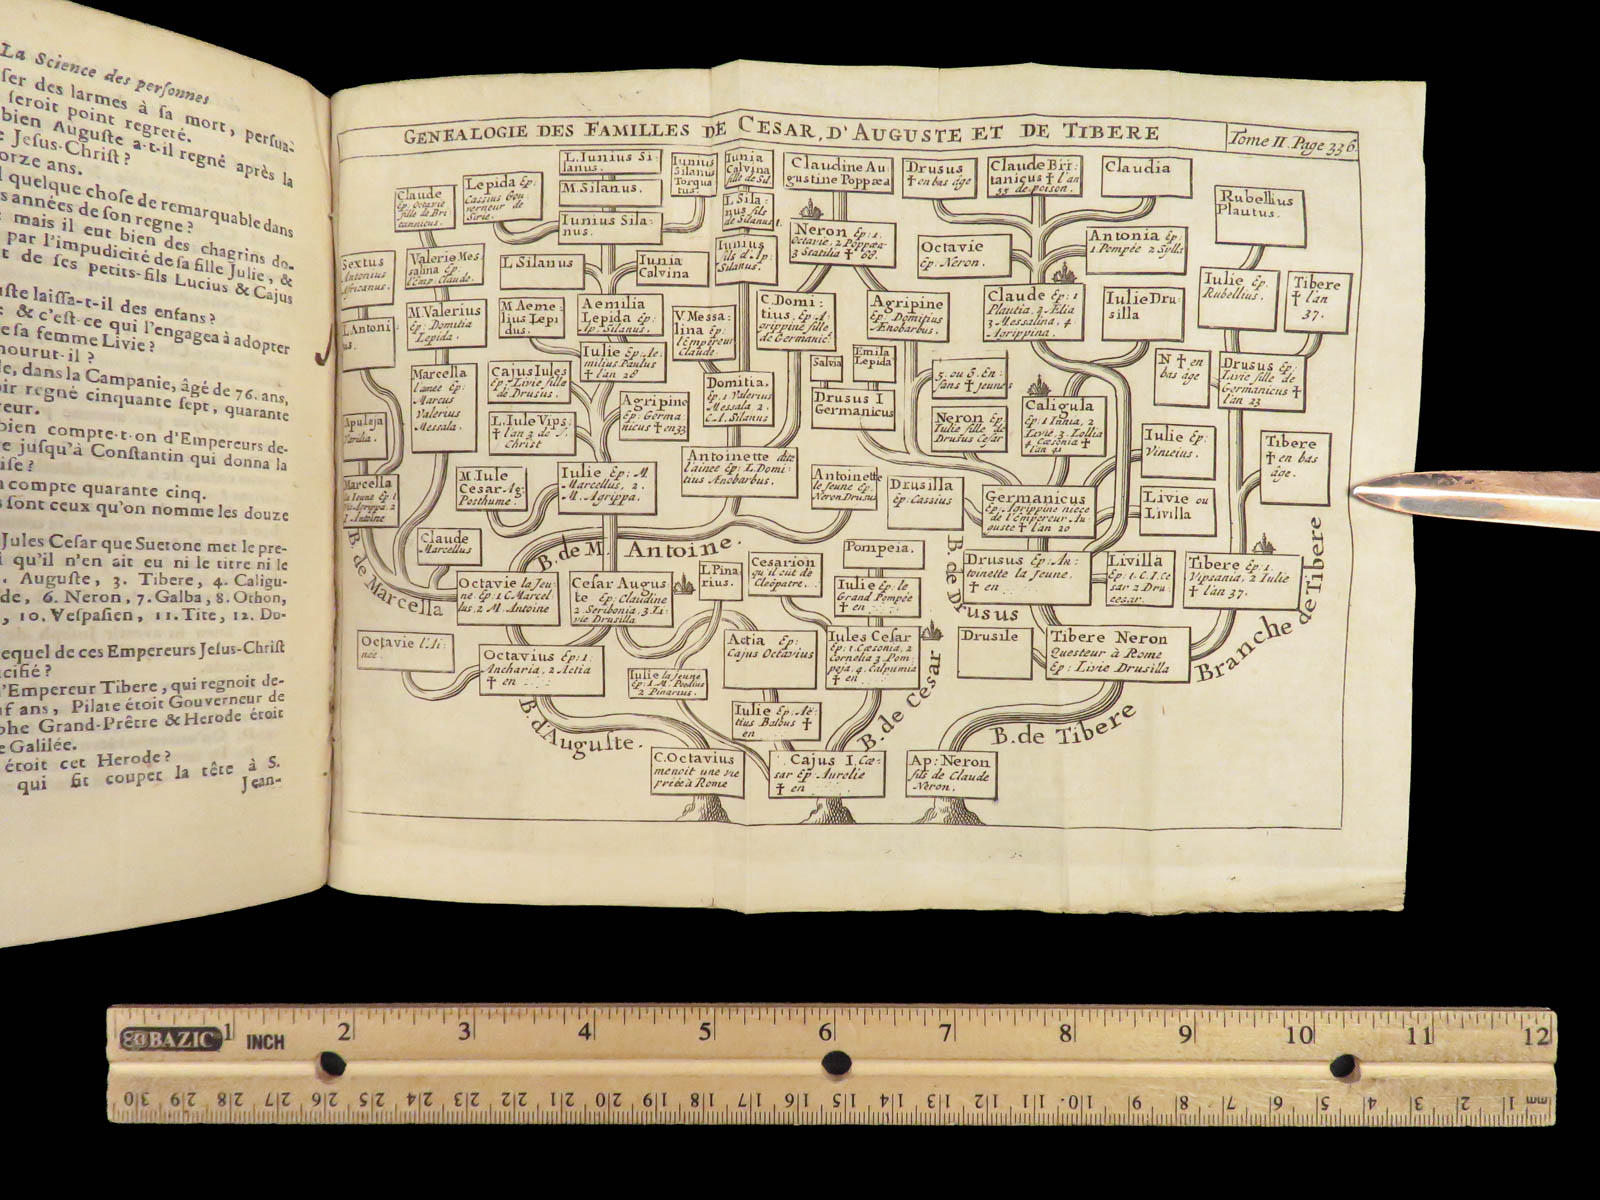 La Science des personnes
ser des larmes à sa mort, persua-
seroit point regreté.
bien Auguste a-t-il regné après la
Jesus-Christ?
orze ans.
quelque chose de remarquable dans
s années de son regne?
mais il eut bien des chagrins do-
par l'impudicité de sa fille Julie, &
t de ses petits-fils Lucius & Cajus
ste laissa-t-il des enfans?
& c'est-ce qui l'engagea à adopter
e sa femme Livie?
mourut-il?
le, dans la Campanie, âgé de 76. ans,
oir regné cinquante sept, quarante
reur.
bien compte-t-on d'Empereurs de-
e jusqu'à Constantin qui donna la
ise?
compte quarante cinq.
s sont ceux qu'on nomme les douze
Jules Cesar que Suetone met le pre-
qu'il n'en ait eu ni le titre ni le
. Auguste, 3. Tibere, 4. Caligu-
de, 6. Neron, 7. Galba, 8. Othon,
, 10. Vespasien, 11. Tite, 12. Do-
equel de ces Empereurs Jesus-Christ
cifié?
l'Empereur Tibere, qui regnoit de-
uf ans, Pilate étoit Gouverneur de
phe Grand-Prêtre & Herode étoit
e Galilée.
étoit cet Herode?
qui fit couper la tête à S.
Jean-
GENEALOGIE DES FAMILLES DE CESAR, D'AUGUSTE ET DE TIBERE
Tome II. Page 336.
L. Iunius Si:
lanus.
M. Silanus.
Iunius Sila:
nus.
Iunius
Silanus
Torqua
tus.
Iunia
Calvina
fille de Sil.
L. Sila:
nus fils
de Silanus.
Iunius
fils d'Ap:
Silanus.
Claudine Au
gustine Poppæa
Drusus
† en bas âge
Claude Bri:
tanicus † l'an
55 de poison.
Claudia
Rubellius
Plautus.
Claude
Ep: Octavie
fille de Bri
tannicus.
Lepida Ep:
Cassius Gou
verneur de
Sirie.
Neron Ep: 1.
Octavie, 2 Poppæa
3 Statilia † 68.
Octavie
Ep: Neron.
Antonia Ep:
1. Pompée 2 Sylla
Sextus
Antonius
Africanus.
Valerie Mes
salina Ep:
l'Emp. Claude.
L Silanus
Iunia
Calvina
Iulie Ep.
Rubellius.
Tibere
† l'an
37.
L. Antoni
us.
M. Valerius
Ep: Domitia
Lepida.
M Aeme:
lius Lepi
dus.
Aemilia
Lepida Ep:
Ap: Silanus.
V. Messa:
lina Ep:
l'Empereur
Claude.
C. Domi:
tius, Ep: A:
grippine fille
de Germanic.
Agripine
Ep: Domitius
Ænobarbus.
Claude Ep: 1
Plautia, 2 Ælia
3 Messalina, 4
Agrippina.
Iulie Dru:
silla
Iulie Ep. Ae:
milius Paulus
† l'an 28
Marcella
l'ainee Ep:
Marcus
Valerius
Messala.
Cajus Iules
Ep: Livie fille
de Drusus.
Agripine
Ep: Germa:
nicus † en 33
L. Iule Vips:
† l'an 3 de J.
Christ
Domitia.
Ep. 1 Valerius
Messala 2.
C. I. Silanus
Salvia
Emila
Lepida
Drusus I
Germanicus
5. ou 6. En:
fans † jeunes
Neron Ep:
Iulie fille de
Drusus Cesar
Caligula
Ep: 1 Iunia, 2
Livie, 3 Lollia
4 Cæsonia †
l'an 41
N † en
bas age
Drusus Ep:
Livie fille de
Germanicus †
l'an 23
Iulie Ep:
Vinicius.
Tibere
† en bas
âge.
Apuleja
Varilia.
Marcella
la Ieune Ep: 1
I. Antoine
M. Iule
Cesar Ag:
Posthume.
Iulie Ep: M.
Marcellus, 2.
M. Agrippa.
Antoinette dite
l'ainée Ep: L. Domi:
tius Anobarbus.
Antoinette
le Ieune Ep:
Neron Drusus
Drusilla
Ep: Cassius
Germanicus
Ep: Agripine niece
de l'empereur Au
guste † l'an 20
Livie ou
Livilla
B. de Marcella
Claude
Marcellus
B. de M. Antoine.
Octavie la Jeu:
ne. Ep: 1 C. Marcel
lus, 2 M. Antoine
Cesar Augus
te Ep: Claudine
2 Scribonia, 3 Li:
vie Drusilla
L Pina
rius.
Cesarion
qu'il eut de
Cleopatre.
Pompeia.
Iulie Ep: le
Grand Pompée
† en
B. de Drusus
Drusus Ep: An:
toinette la Jeune.
† en
Livilla
Ep: 1. C. I. Ce
sar 2 Dru:
cesar.
Tibere Ep. 1.
Vipsania, 2 Iulie
† l'an 37.
Branche de Tibere
Octavie l'Ai:
née.
Octavius Ep: 1:
Ancharia, 2 Actia
† en
Iulie la Jeune
Ep: 1. M. Pædius
2 Pinarius.
Actia Ep:
Cajus Octavius
Iules Cesar
Ep: 1. Cæsonia, 2
Cornelia 3 Pom:
peja, 4. Calpurnia
† en
Drusile
Tibere Neron
Questeur à Rome
Ep: Livie Drusilla
B. d'Auguste.
Iulie Ep. Ac:
tius Balbus †
en
B. de Cesar
B. de Tibere
C. Octavius
menoit une vie
privée à Rome
Cajus I. Cæ:
sar Ep Aurelie
† en
Ap: Neron
fils de Claude
Neron.
BAZIC
1 INCH 2 3 4 5 6 7 8 9 10 11 12
30 29 28 27 26 25 24 23 22 21 20 19 18 17 16 15 14 13 12 11 10 9 8 7 6 5 4 3 2 1 mm